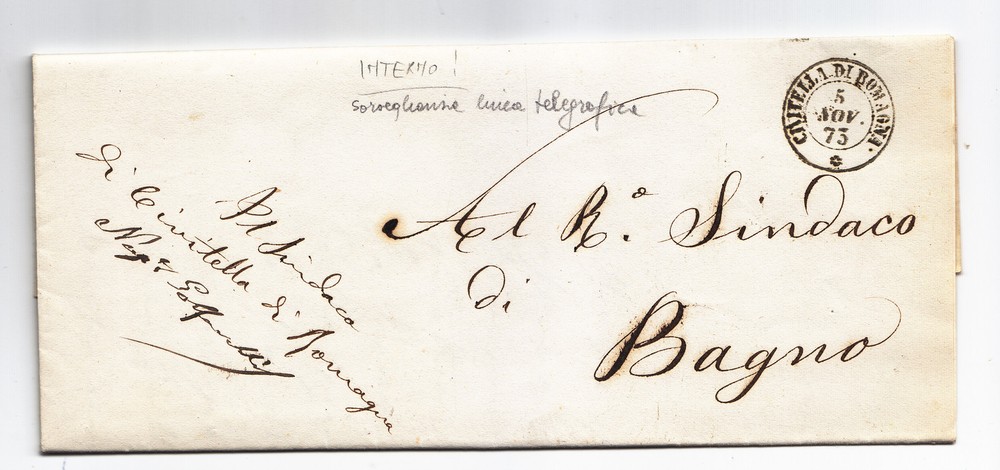 INTERNO !
sorveglianza linea telegrafica
CIVITELLA DI ROMAGNA
5
NOV.
73
Al R.º Sindaco
di
Bagno
Il Sindaco
di Civitella di Romagna